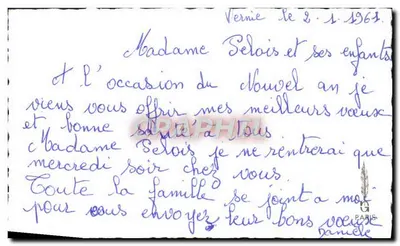 Vernie le 2.1.1961.
Madame Pelois et ses enfants
A l'occasion du Nouvel an je
viens vous offrir mes meilleurs vœux
et bonne santé à tous
Madame Pelois je ne rentrerai que
mercredi soir chez vous.
Toute la famille se joint a moi
pour vous envoyer leur bons vœux
Danièle
PARIS